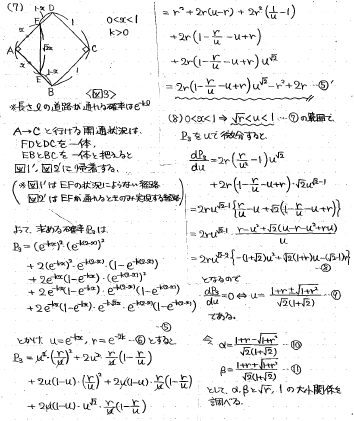 (7)
0<x<1
k>0
1-x D 1
F
x
A √2x C
x
E
1-x B 1
<図3>
※長さlの道路が通れる確率はe^{-kl}
A→Cと行ける開通状況は、
FDとDCを一体、
EBとBCを一体と捉えると
図1'、図2'に帰着する。
(※図1'はEFの状況によらない経路
図2'はEFが通れるときのみ実現する経路)
よって、求める確率P₃は
P₃=(e^{-kx})²・(e^{-k(2-x)})²
+2(e^{-kx})²・e^{-k(2-x)}・(1-e^{-k(2-x)})
+2e^{-kx}(1-e^{-kx})・(e^{-k(2-x)})²
+2e^{-kx}(1-e^{-kx})・e^{-k(2-x)}(1-e^{-k(2-x)})
+2e^{-kx}(1-e^{-kx})・e^{-k√2x}・e^{-k(2-x)}(1-e^{-k(2-x)})
―⑤
とかけ、u=e^{-kx}, r=e^{-2k} ―⑥とすると
P₃=u²・(r/u)²+2u²・r/u(1-r/u)
+2u(1-u)・(r/u)²+2u(1-u)・r/u(1-r/u)
+2u(1-u)・u^{√2}・r/u(1-r/u)
=r²+2r(u-r)+2r²(1/u-1)
+2r(1-r/u-u+r)
+2r(1-r/u-u+r)u^{√2}
=2r(1-r/u-u+r)u^{√2}-r²+2r ―⑤'
(8) 0<x<1⇒√r<u<1 ―⑦の範囲で、
P₃をuで微分すると
dP₃/du=2r(r/u²-1)u^{√2}
+2r(1-r/u-u+r)・√2u^{√2-1}
=2ru^{√2-1}{r/u-u+√2(1-r/u-u+r)}
=2ru^{√2-1}・r-u²+√2(u-r-u²+ru)/u
=2ru^{√2-2}{-(1+√2)u²+√2(1+r)u-(√2-1)r}
―⑧
となるので
dP₃/du=0⇔u=1+r±√1+r²/√2(1+√2) ―⑨
である。
今 α=1+r-√1+r²/√2(1+√2) ―⑩
β=1+r+√1+r²/√2(1+√2) ―⑪
として、α,βと√r, 1の大小関係を
調べる。